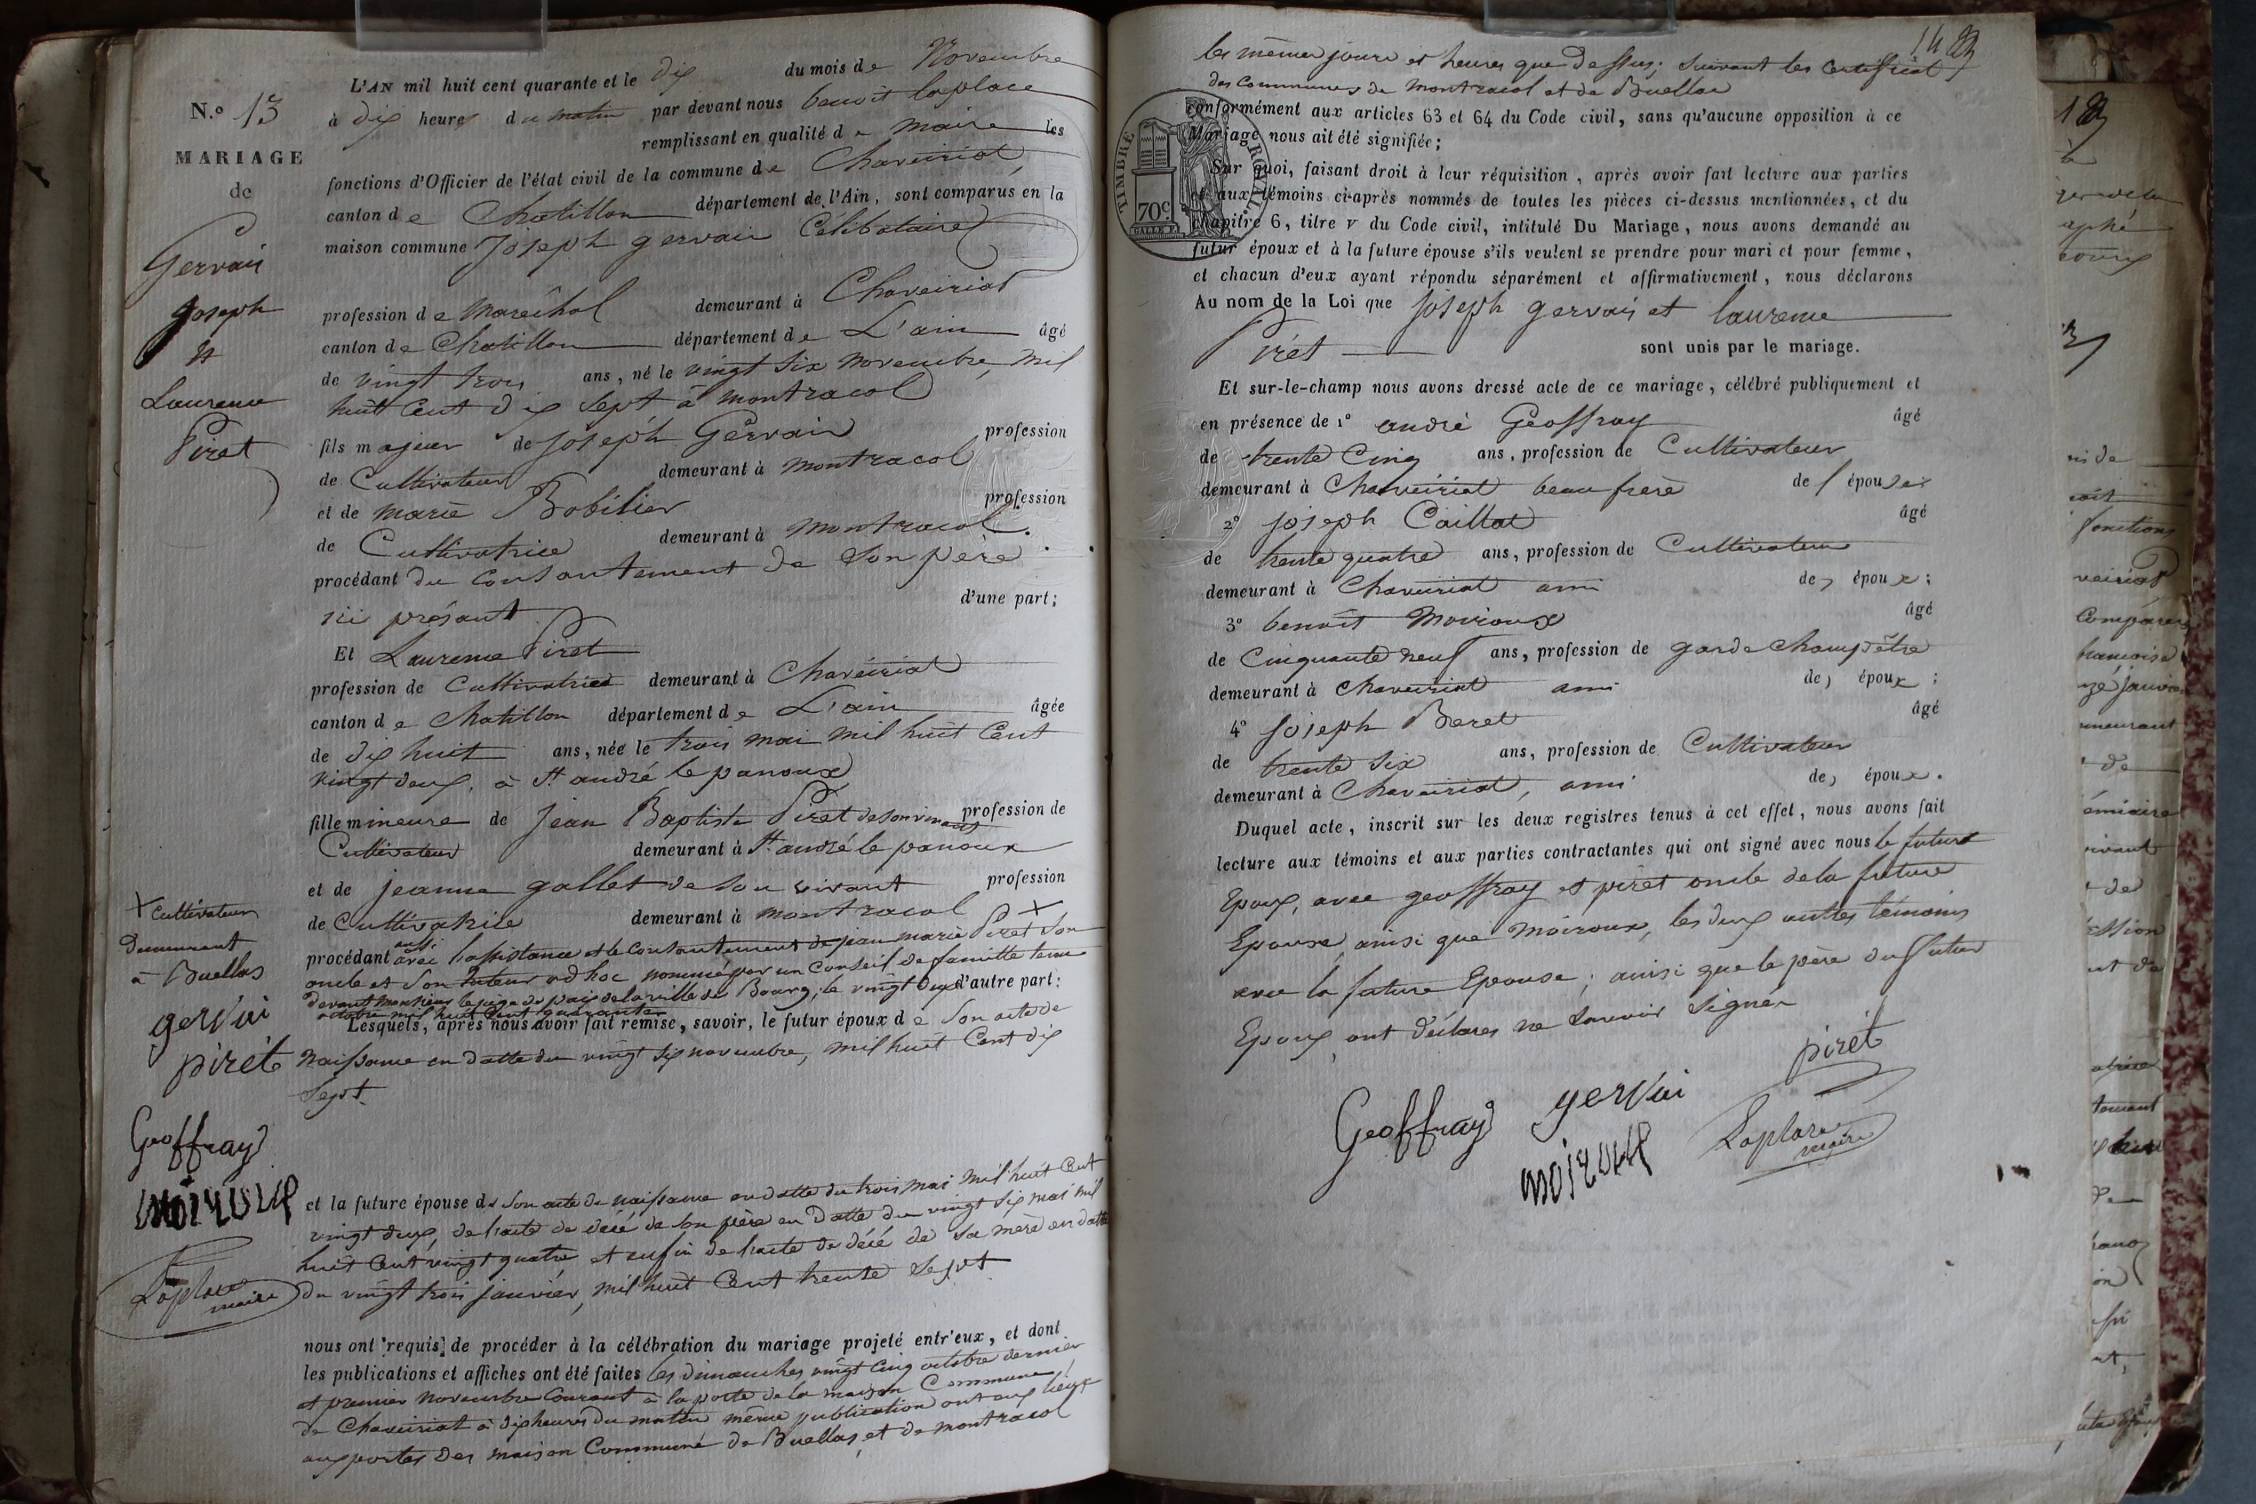 N.° 13
MARIAGE
de
Gervais
Joseph
et
Laurence
Piret
L'AN mil huit cent quarante et le dix du mois de Novembre
à dix heures du matin par devant nous benoit laplace
remplissant en qualité de maire les
fonctions d'Officier de l'état civil de la commune de Chaveiriat
canton de Chatillon département de l'Ain, sont comparus en la
maison commune Joseph gervais Célibataire
profession de maréchal demeurant à Chaveiriat
canton de Chatillon département de L'ain âgé
de vingt trois ans, né le vingt six novembre, mil
huit Cent dix sept à montracol
fils majeur de Joseph Gervais profession
de Cultivateur demeurant à montracol
et de marie Bobilier profession
de Cultivatrice demeurant à montracol.
procédant du consantement de son père
ici présant d'une part;
Et Laurence Piret
profession de Cultivatrice demeurant à Chaveiriat
canton de Chatillon département de L'ain âgée
de dix huit ans, née le trois mai mil huit Cent
vingt deux, à St andré le panoux
fille mineure de Jean Baptiste Piret de son vivant profession de
Cultivateur demeurant à St andré le panoux
et de jeanne gallet de son vivant profession
de Cultivatrice demeurant à montracol
procédant avec l'assistance et le consantement de jean marie Piret + son
oncle et son tuteur ad hoc nommé par un conseil de famille tenu
devant monsieur le juge de paix de la ville de Bourg, le vingt deux d'autre part:
octobre mil huit Cent quarante
+ Cultivateur
Demeurant
à Buellas
gervai
piret
Geoffray
moiroux
Laplace
maire
Lesquels, après nous avoir fait remise, savoir, le futur époux de Son acte de
naissance en datte du vingt six novembre, mil huit Cent dix
Sept.
et la future épouse de son acte de naissance en datte du trois mai mil huit Cent
vingt deux, de l'acte de décé de son père en datte du vingt six mai mil
huit Cent vingt quatre et enfin de l'acte de décé de sa mere en datte
du vingt trois janvier, mil huit Cent trente sept
nous ont requis de procéder à la célébration du mariage projeté entr'eux, et dont
les publications et affiches ont été faites les dimanches vingt cinq octobre dernier
et premier novembre Courant à la porte de la maison Commune
de Chaveiriat à dix heures du matin même publication ont eux lieux
aux portes des maison Commune de Buellas, et de montracol
14
les mêmes jours et heures que dessus; suivant les certificat
des communes de montracol et de Buellas
TIMBRE ROYAL
70c
conformément aux articles 63 et 64 du Code civil, sans qu'aucune opposition à ce
Mariage nous ait été signifiée;
Sur quoi, faisant droit à leur réquisition, après avoir fait lecture aux parties
et aux témoins ci-après nommés de toutes les pièces ci-dessus mentionnées, et du
chapitre 6, titre v du Code civil, intitulé Du Mariage, nous avons demandé au
futur époux et à la future épouse s'ils veulent se prendre pour mari et pour femme,
et chacun d'eux ayant répondu séparément et affirmativement, nous déclarons
Au nom de la Loi que Joseph gervais et laurence
Piret sont unis par le mariage.
Et sur-le-champ nous avons dressé acte de ce mariage, célébré publiquement et
en présence de 1° andré Geoffray âgé
de trente Cinq ans, profession de Cultivateur
demeurant à Chaveiriat beau frere de l'épouse
2° Joseph Caillat âgé
de trente quatre ans, profession de Cultivateur
demeurant à Chaveiriat ami des époux;
3° benoît Moiroux âgé
de Cinquante neuf ans, profession de garde champêtre
demeurant à Chaveiriat ami des époux;
4° Joseph Beret âgé
de trente six ans, profession de Cultivateur
demeurant à Chaveiriat, ami des époux.
Duquel acte, inscrit sur les deux registres tenus à cet effet, nous avons fait
lecture aux témoins et aux parties contractantes qui ont signé avec nous le future
Epoux, avec geoffray et piret oncle de la future
Epouse, ainsi que Moiroux, les deux autres témoins
avec la future Epouse; ainsi que le père du futur
Epoux, ont déclarés ne savoir signer
piret
Geoffray gervai
moiroux
Laplace
maire